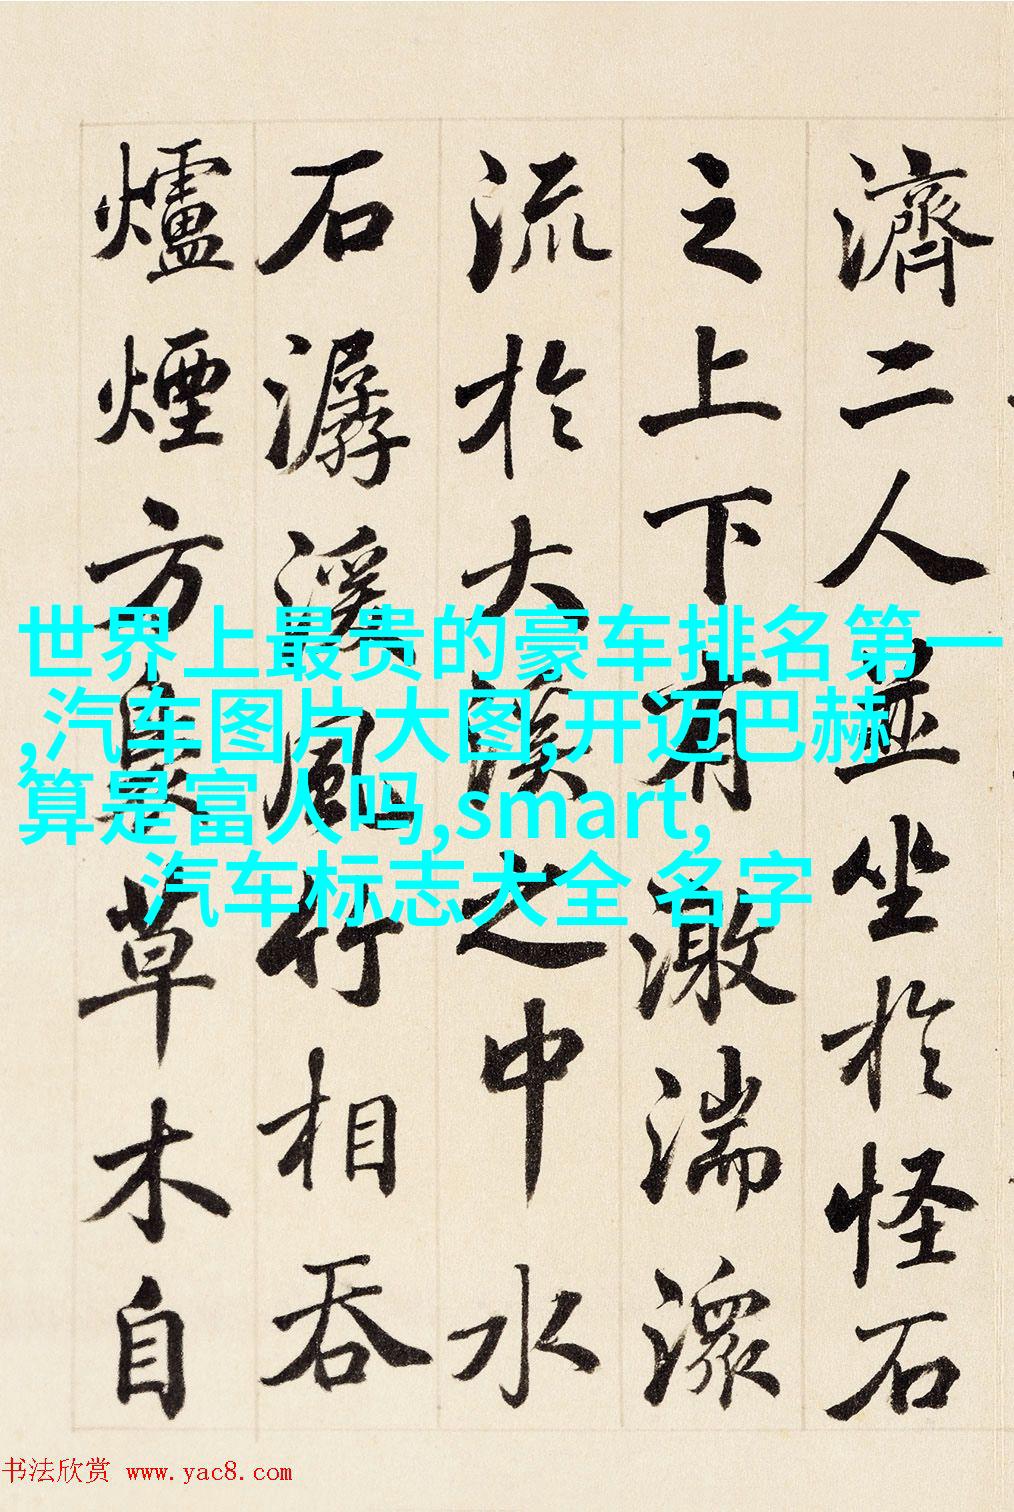 濟二人並坐於怪石
之上下有激湍潀
流於大溪之中水
石潺湲風竹相吞
爐煙方裊草木自
世界上最贵的豪车排名第一
,汽车图片大图,开迈巴赫
算是富人吗,smart,
汽车标志大全 名字
书法欣赏 www.yac8.com